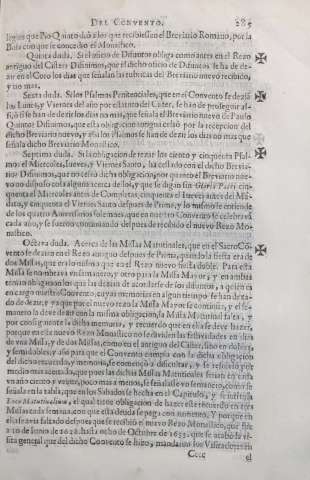 DEL CONVENTO. 285
que Pio Quinto dió a los que recibiessen el Breviario Romano, por la
Bula con que se concedio el Monastico.
Quinta duda. Si el oficio de Difuntos obliga como antes en el Rezo
antiguo del Cister Difinimos, que el dicho oficio de Difuntos se ha de dezir
en el Coro los dias que señalan las rubricas del Breviario nuevo recibido,
y no mas.
Sexta duda. Si los Psalmos Penitenciales, que en el Convento se dezian
los Lunes, y Viernes del año por estatuto del Cister, se han de proseguir
assi, ó si se han de dezir los dias no mas, que señala el Breviario nuevo de Paulo
Quinto: Difinimos, que esta obligacion antigua cessó por la recepcion del
dicho Breviario nuevo, y assi los Psalmos se han de dezir los dias no mas que
señala dicho Breviario Monastico.
Septima duda. Si la obligacion de rezar los ciento y cinquenta Psalmos
el Miercoles, Iueves, y Viernes Santo, ha cessado con el dicho Breviario:
Difinimos, que no cessó dicha obligacion, por quanto el Breviario nuevo
no dispuso cosa alguna acerca de los, y que se digan sin Gloria Patri cinquenta
el Miercoles antes de Completas, cinquenta el Iueves antes del
y cinquenta el Viernes Santo despues de Prima, y lo mismo se entiende
de los quatro Aniversarios solemnes, que en nuestro Convento se celebran
cada año, y se fueron continuando despues de recibido el nuevo Rezo Monastico.
Octava duda. Acerca de las Missas Matutinales, que en el Sacro Convento
se dezian en el Rezo antiguo despues de Prima, quando la fiesta era de
dos Missas, que era lo mismo que en el Rezo nuevo fiesta doble. Para esta
Missa se nombrava un semanero, y otro para la Missa Mayor, y en ambas
tenian obligacion los que las dezian de acordarse de los difuntos, a quien es
en cargo nuestro Convento, cuyas memorias en algun tiempo se han dexado
de dezir, y ya que por el nuevo rezo la Missa Mayor se continúa, y el semanero
la deve dezir con la misma obligacion, la Missa Matutinal falta, y
por consiguiente la dicha memoria, y recuerdo que en ella se deve hazer,
porque en este nuevo Rezo Monastico no se dividen las festividades en dias
de una Missa, y de dos Missas, como en el antiguo del Cister, sino en dobles,
y semidobles; y assi para que el Convento cumpla con la dicha obligacion
del dicho recuerdo, y memoria, se començó a dificultar, y se resolvió por
medio mas acertado, que pues las dichas Missas Matutinales serian en cada
un año ciento y veinte, poco mas a menos, se señalasse un semanero, como se
señala en la tabla, que en los Sabados se hecha en el Capitulo, y se intitula
Loco Matutinalium, el qual tiene obligacion de hazer este recuerdo en tres
Missas cada semana, con que esta deuda se paga con aumento. Y porque en
ella se avia faltado despues que se recibió el nuevo Rezo Monastico, que fue
a 20 de Iunio de 1628. hasta ocho de Octubre de 1633. que se acabó la visita
general que del dicho Convento se hizo, mandaron los Visitadores en
Cccc el